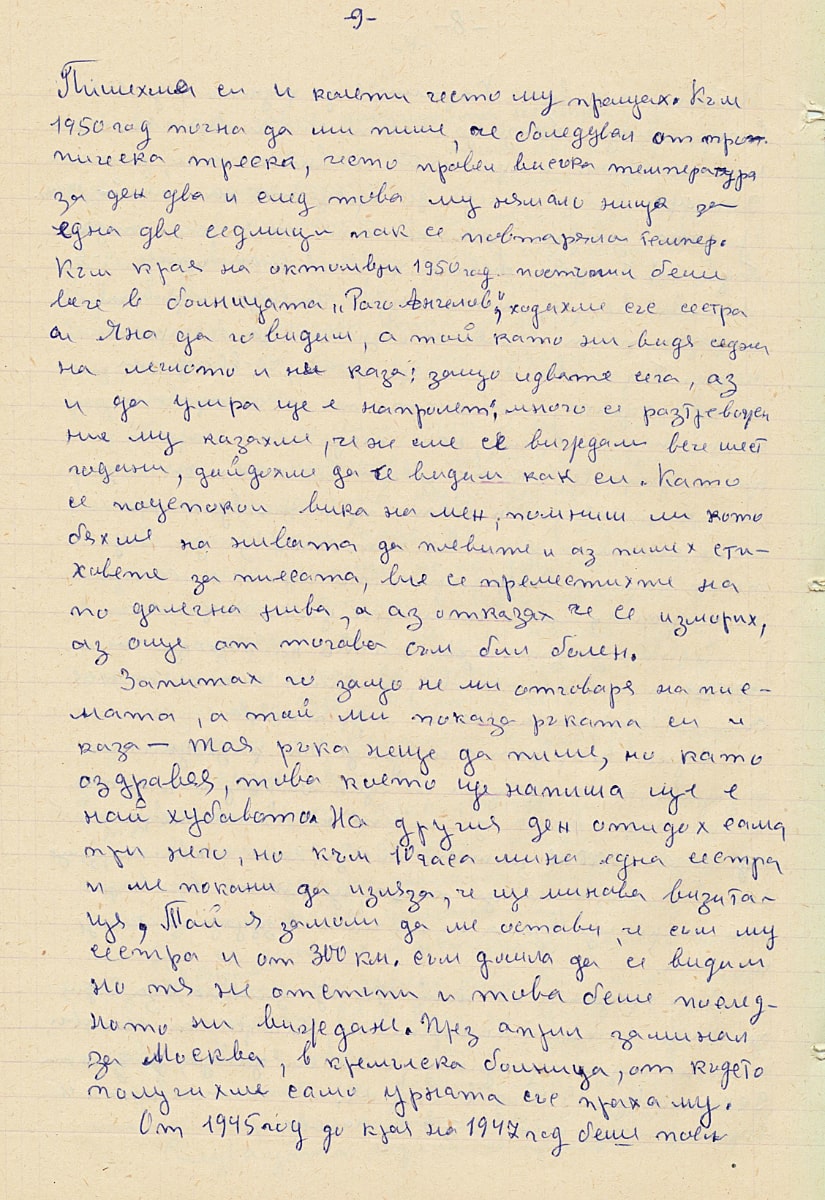 -9-
Пишехме си и колети често му пращах. Към
1950 год почна да ми пише, че боледувал от тро-
пическа треска, често правел висока температура
за ден два и след това му нямало нищо за
една две седмици пак се повтаряло темпер.
Към края на октомври 1950 год. постъпил беше
вече в болницата "Рачо Ангелов", ходихме със сестра
си Яна да го видим, а той като ни видя седна
на леглото и ни каза: защо идвате сега, аз
и да умра ще е напролет", много се разтревожи
ние му казахме, че не сме се виждали вече шест
години, дойдохме да те видим как си. Като
се поуспокои вика на мен, помниш ли кото
бяхме на нивата да плевите и аз пишех сти-
ховете за пиесата, вие се преместихте на
по далечна нива, а аз отказах че се изморих,
аз още от тогава съм бил болен.
Запитах го защо не ми отговаря на пис-
мата, а той ми показа ръката си и
каза — тая ръка неще да пише, но като
оздравея, това което ще напиша ще е
най хубавото. На другия ден отидох сама
при него, но към 10 часа мина една сестра
и ме покани да изляза, че ще минава визита-
ция, Той я замоли да ме остави, че съм му
сестра и от 300 км. съм дошла да се видим
но тя не отстъпи и това беше послед-
ното ни виждане. През април заминал
за Москва, в кремълска болница, от където
получихме само урната със праха му.
От 1945 год до края на 1947 год беше